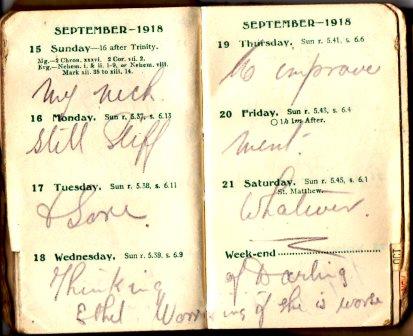 SEPTEMBER–1918
15 Sunday—16 after Trinity.
Mg.—2 Chron. xxxvi. 2 Cor. vii. 2.
Evg.—Nehem. i. & ii. 1-9, or Nehem. viii.
Mark xii. 35 to xiii. 14.
My neck
16 Monday. Sun r. 5.37, s. 6.13
still stiff
17 Tuesday. Sun r. 5.38, s. 6.11
& Sore.
18 Wednesday. Sun r. 5.39, s. 6.9
Thinking
Ethel Worr
SEPTEMBER–1918
19 Thursday. Sun r. 5.41, s. 6.6
No improve
20 Friday. Sun r. 5.43, s. 6.4
After.
ment.
21 Saturday. Sun r. 5.45, s. 6.1
St. Matthew.
Whatever.
Week-end
of Darling
ing if she is worse
OCT